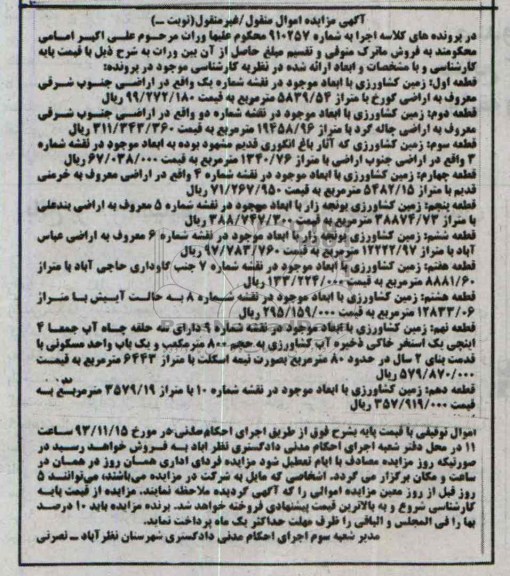 آگهی مزایده اموال منقول/غیرمنقول(نوبت ـ)
در پرونده های کلاسه اجرا به شماره ۹۱۰۲۵۷ محکوم علیها وراث مرحوم علی اکبر امامی
محکومند به فروش ماترک متوفی و تقسیم مبلغ حاصل از آن بین وراث به شرح ذیل با قیمت پایه
کارشناسی و با مشخصات و ابعاد ارائه شده در نظریه کارشناسی موجود در پرونده:
قطعه اول: زمین کشاورزی با ابعاد موجود در نقشه شماره یک واقع در اراضی جنوب شرقی
معروف به اراضی گورخ با متراژ ۵۸۳۹/۵۴ مترمربع به قیمت ۹۹/۲۷۲/۱۸۰ ریال
قطعه دوم: زمین کشاورزی با ابعاد موجود در نقشه شماره دو واقع در اراضی جنوب شرقی
معروف به اراضی چاله گرد با متراژ ۱۹۴۵۸/۹۶ مترمربع به قیمت ۳۱۱/۳۴۳/۳۶۰ ریال
قطعه سوم: زمین کشاورزی که آثار باغ انگوری قدیم مشهود بوده به ابعاد موجود در نقشه شماره
۳ واقع در اراضی جنوب اراضی با متراژ ۱۳۴۰/۷۶ مترمربع به قیمت ۶۷/۰۳۸/۰۰۰ ریال
قطعه چهارم: زمین کشاورزی با ابعاد موجود در نقشه شماره ۴ واقع در اراضی معروف به خرمنی
قدیم با متراژ ۵۴۸۲/۱۵ مترمربع به قیمت ۷۱/۲۶۷/۹۵۰ ریال
قطعه پنجم: زمین کشاورزی یونجه زار با ابعاد موجود در نقشه شماره ۵ معروف به اراضی بندعلی
با متراژ ۳۸۸۷۴/۷۳ مترمربع به قیمت ۳۸۸/۷۴۷/۳۰۰ ریال
قطعه ششم: زمین کشاورزی یونجه زار با ابعاد موجود در نقشه شماره ۶ معروف به اراضی عباس
آباد با متراژ ۱۲۲۲۲/۹۷ مترمربع به قیمت ۹۷/۷۸۳/۷۶۰ ریال
قطعه هفتم: زمین کشاورزی با ابعاد موجود در نقشه شماره ۷ جنب گاوداری حاجی آباد با متراژ
۸۸۸۱/۶۰ مترمربع به قیمت ۱۳۳/۲۲۴/۰۰۰ ریال
قطعه هشتم: زمین کشاورزی با ابعاد موجود در نقشه شماره ۸ به حالت آیش با متراژ
۱۲۸۳۳/۰۶ مترمربع به قیمت ۲۹۵/۱۵۹/۰۰۰ ریال
قطعه نهم: زمین کشاورزی با ابعاد موجود در نقشه شماره ۹ دارای سه حلقه چاه آب جمعا ۴
اینچی یک استخر خاکی ذخیره آب کشاورزی به حجم ۸۰۰ مترمکعب و یک باب واحد مسکونی با
قدمت بنای ۲ سال در حدود ۸۰ مترمربع بصورت نیمه اسکلت با متراژ ۶۴۴۳ مترمربع به قیمت
۵۷۹/۸۷۰/۰۰۰ ریال
قطعه دهم: زمین کشاورزی با ابعاد موجود در نقشه شماره ۱۰ با متراژ ۳۵۷۹/۱۹ مترمربع به
قیمت ۳۵۷/۹۱۹/۰۰۰ ریال
اموال توقیفی با قیمت پایه بشرح فوق از طریق اجرای احکام مدنی در مورخ ۹۳/۱۱/۱۵ ساعت
۱۱ در محل دفتر شعبه اجرای احکام مدنی دادگستری نظر آباد به فروش خواهد رسید در
صورتیکه روز مزایده مصادف با ایام تعطیل شود مزایده فردای اداری همان روز در همان
ساعت و مکان برگزار می گردد. اشخاصی که مایل به شرکت در مزایده می‌باشند، می‌توانند ۵
روز قبل از روز معین مزایده اموالی را که آگهی گردیده ملاحظه نمایند. مزایده از قیمت پایه
کارشناسی شروع و به بالاترین قیمت پیشنهادی فروخته خواهد شد. برنده مزایده باید ۱۰ درصد
بها را فی المجلس و الباقی را ظرف مهلت حداکثر یک ماه پرداخت نماید.
مدیر شعبه سوم اجرای احکام مدنی دادگستری شهرستان نظرآباد ـ نصرتی